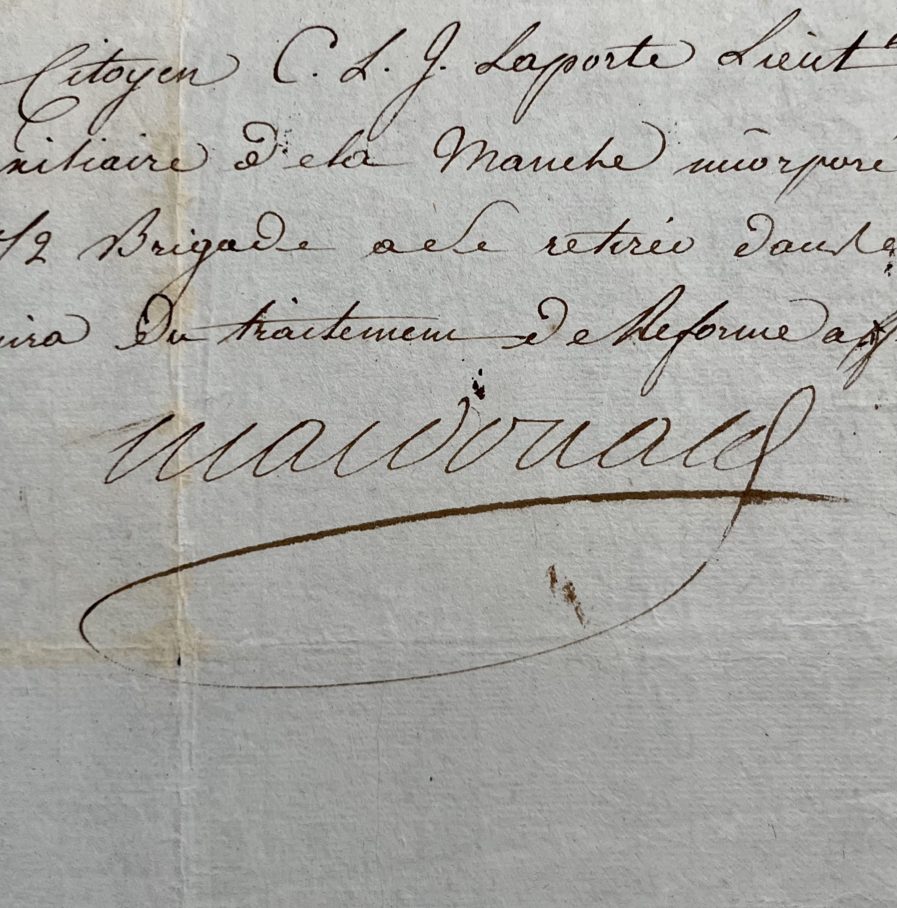 Citoyen C. L. J. Laporte Lieut
nitiaire de la Manche incorporé
1/2 Brigade a se retirer dans
uira du traitement de Reforme aff
Macdonald